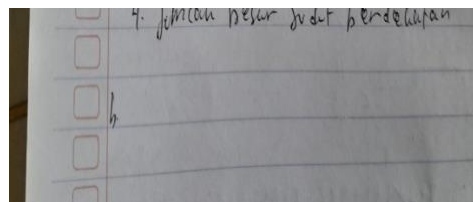 4. jumlah besar sudut berdekatan
h.